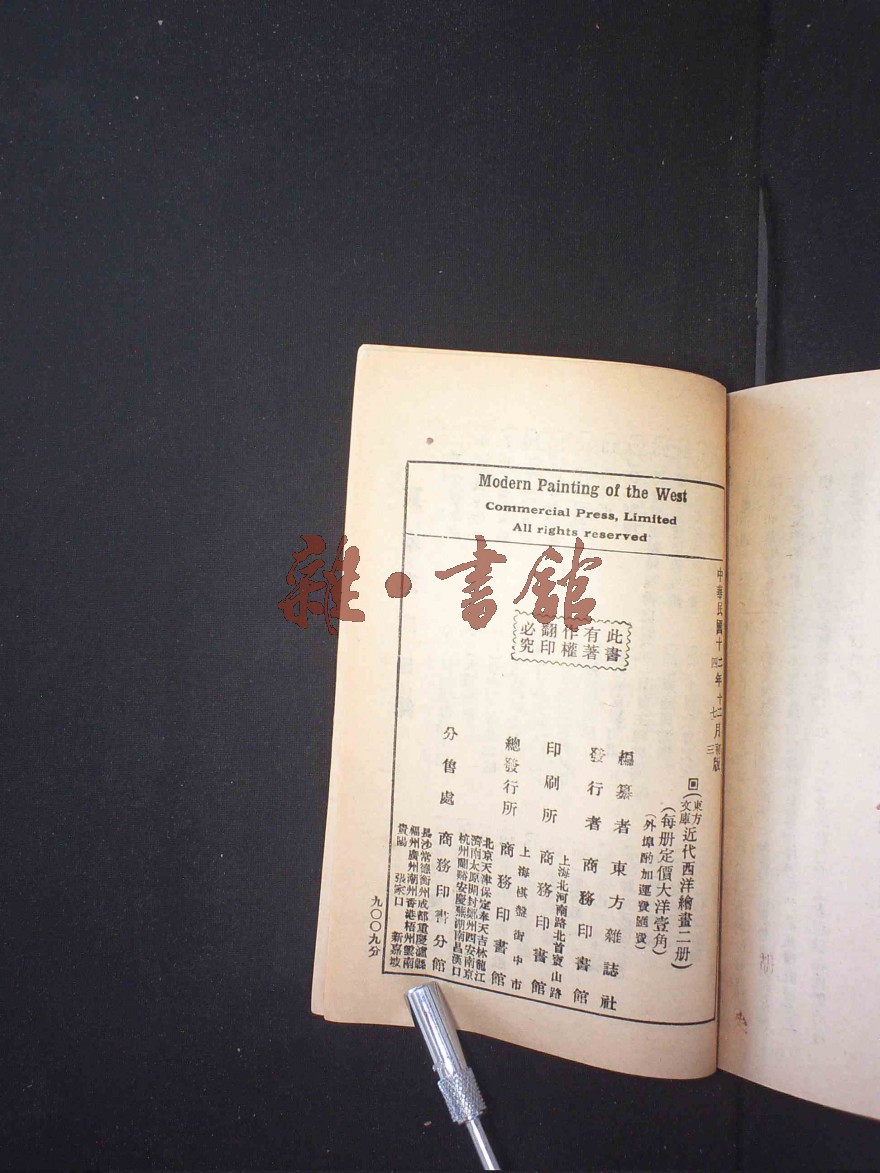 Modern Painting of the West
Commercial Press, Limited
All rights reserved
雜·書館
此書
有著
作權
翻印
必究
中華民國十二年十二月初版
四 七 三
(東方文庫)近代西洋繪畫二册)
(每册定價大洋壹角)
(外埠酌加運費匯費)
編纂者 東方雜誌社
發行者 商務印書館
上海北河南路北首寶山路
印刷所 商務印書館
上海棋盤街中市
總發行所 商務印書館
北京天津保定奉天吉林龍江
濟南太原開封鄭州西安南京
杭州蘭谿安慶蕪湖南昌漢口
分售處 商務印書分館
長沙常德衡州成都重慶瀘縣
福州廣州潮州香港梧州雲南
貴陽 張家口 新嘉坡
九〇〇九分